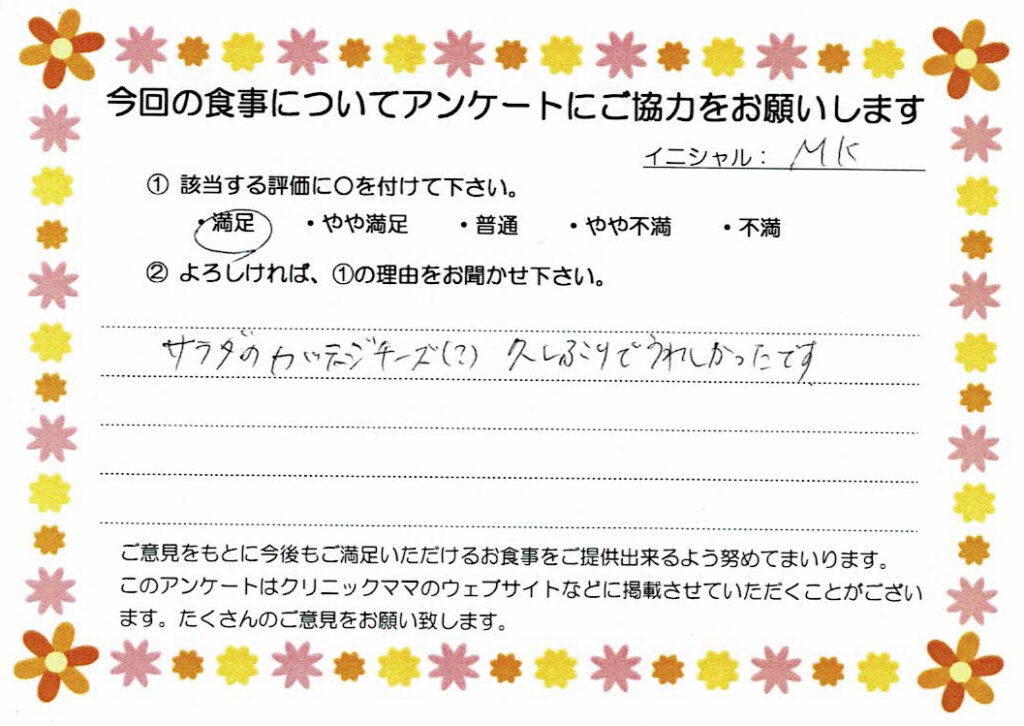 今回の食事についてアンケートにご協力をお願いします
イニシャル： MK
① 該当する評価に〇を付けて下さい。
・満足 ・やや満足 ・普通 ・やや不満 ・不満
② よろしければ、①の理由をお聞かせ下さい。
サラダのカッテージチーズ(?) 久しぶりでうれしかったです
ご意見をもとに今後もご満足いただけるお食事をご提供出来るよう努めてまいります。
このアンケートはクリニックママのウェブサイトなどに掲載させていただくことがござい
ます。たくさんのご意見をお願い致します。